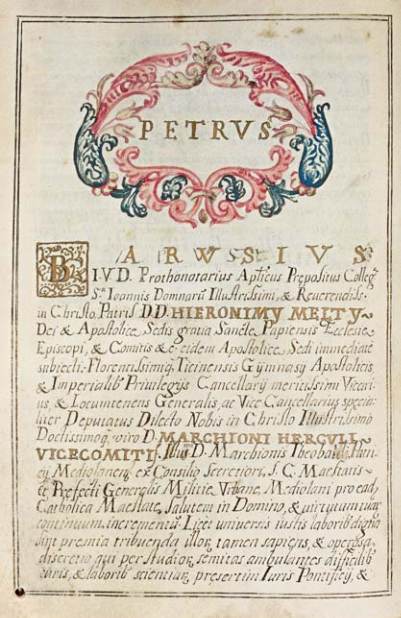 PETRVS
BARWSIVS
I.V.D. Prothonotarius Apticus Prepositus Colleg.
S. Ioannis Domnarũ Illustrissimi, & Reverendiss.
in Christo Patris D.D. HIERONIMY MELTY
Dei & Apostolice Sedis gratia Sancte Papiensis Ecclesie
Episcopi, & Comitis & c. eidem Apostolice Sedi immediate
subiecti. Florentissimiq Ticinensis Gymnasy Apostolicis,
& Imperialib Privilegys Cancellary meritissim Vicari
us, & Locumtenens Generalis, ac Vice Cancellarius specia
liter Deputatus Dilecto Nobis in Christo Illustrissimo
Doctissimoq viro D. MARCHIONI HERCVLI
VICECOMITI. Illus D. Marchionis Theobaldi
ey Mediolanen ex Consilio Secretiori, S. C. Maestatis
& Prefecti Generalis Militie Vrbane Mediolani pro ead
Catholica Maestate, Salutem in Domino, & virtutum
continuum incrementũ. Licet universis iustis laborib digna
sint premia tribuenda illor tamen sapiens, & operosa
discretio qui per Studior semitas ambulantes difficilib
curis, & laborib scientiar, presertim Iuris Pontificy, &